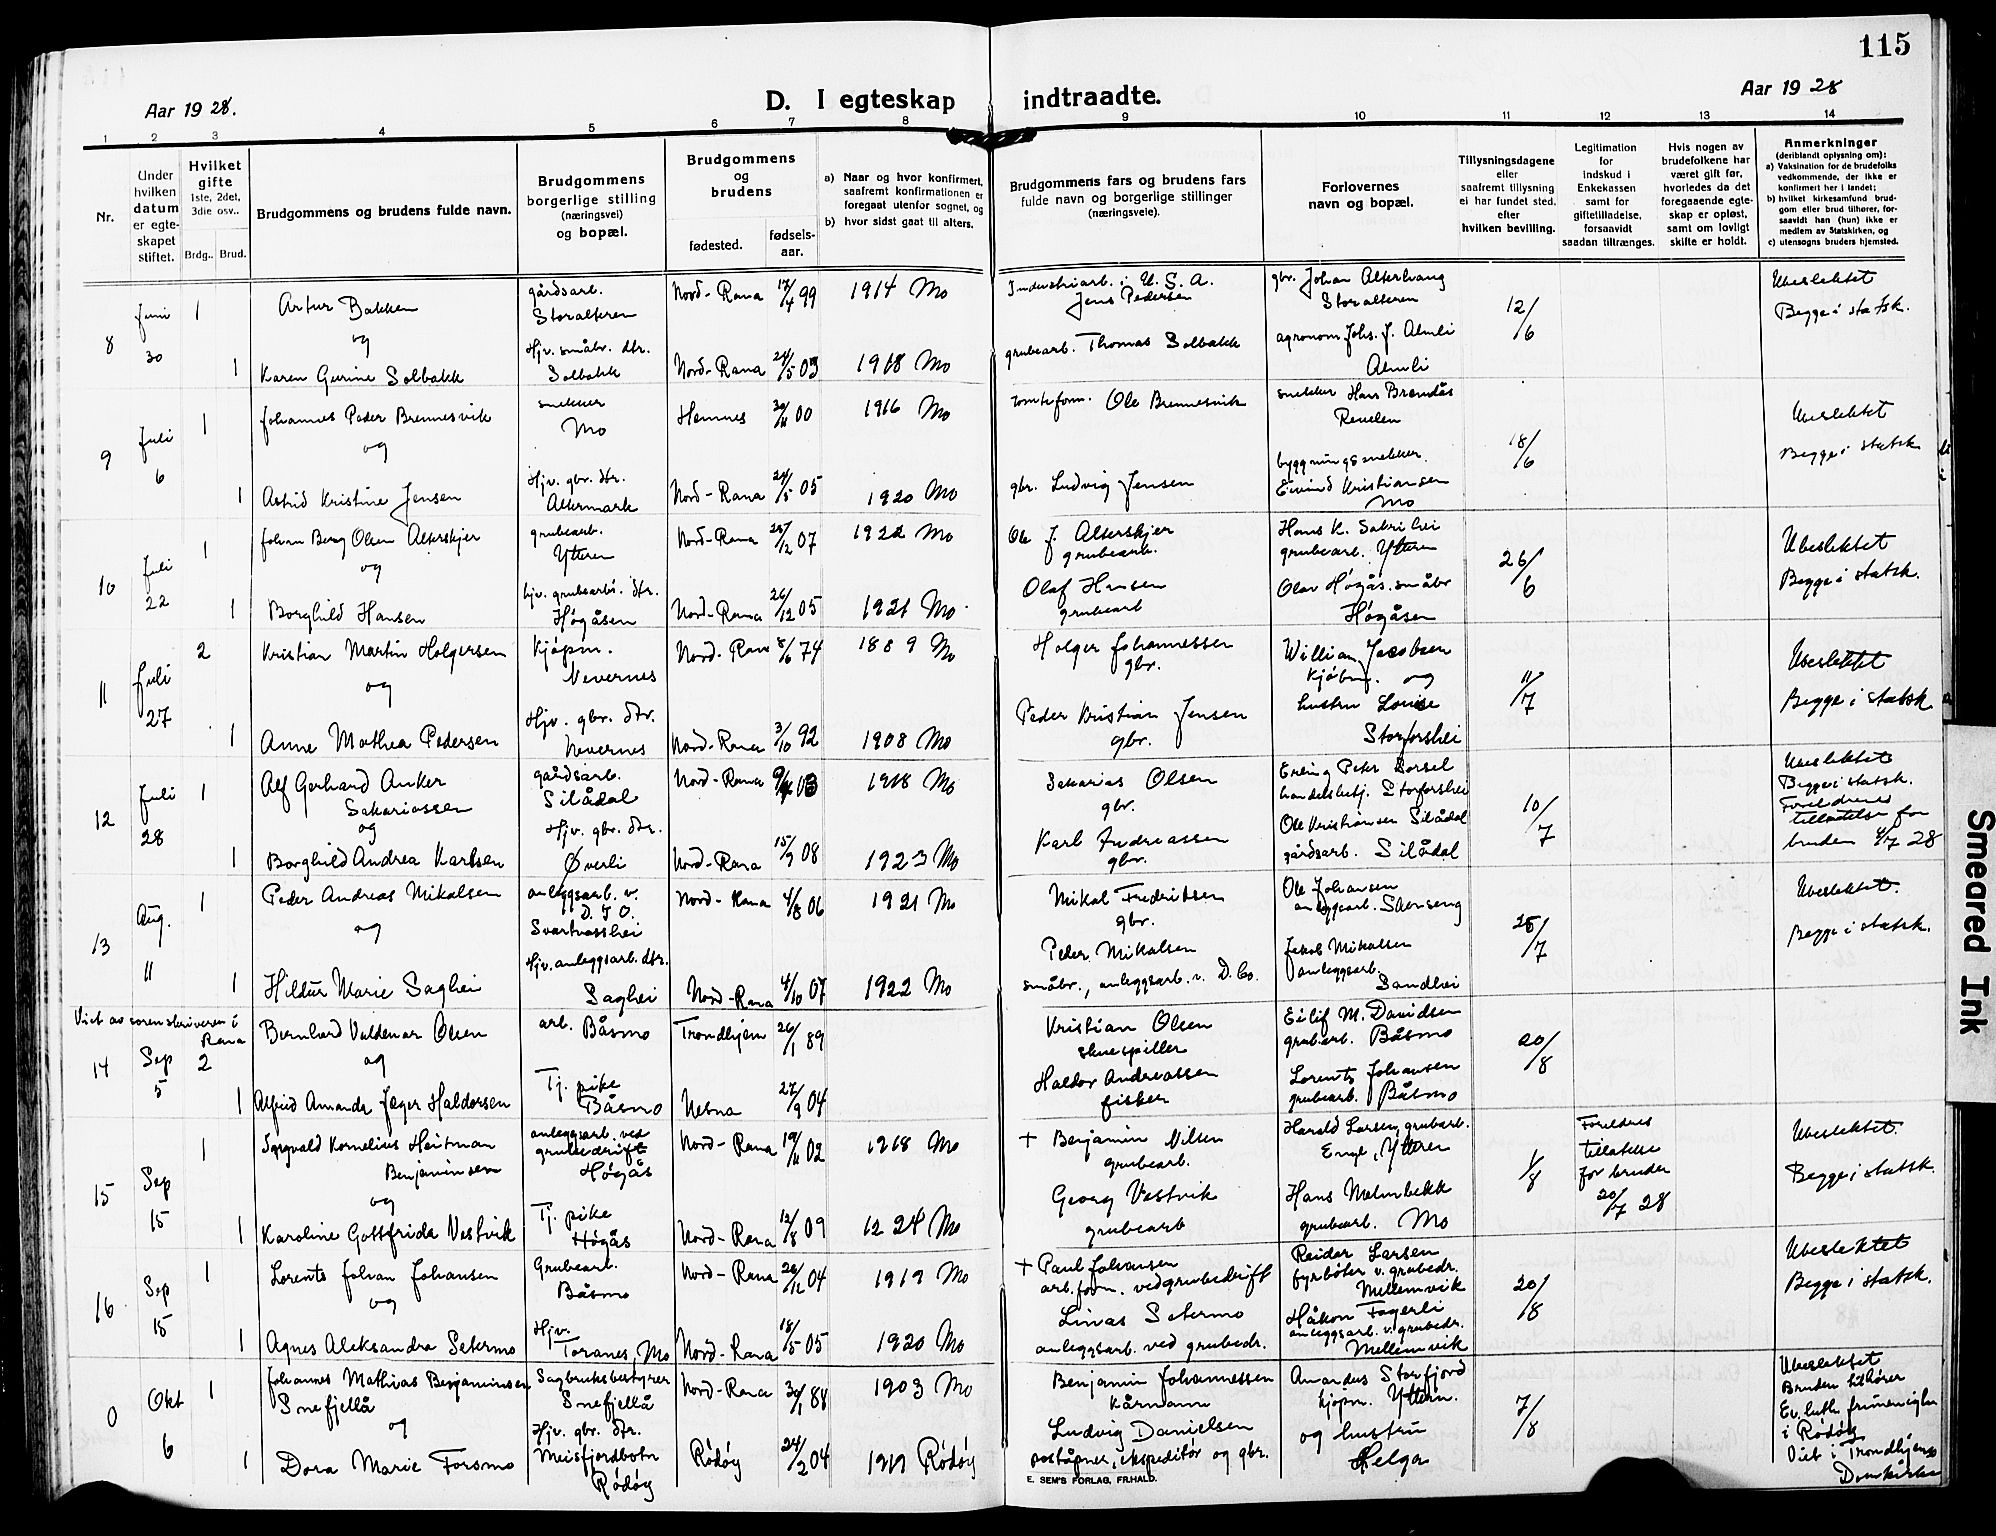 115
Aar 1928.
D. I egteskap indtraadte.
Aar 1928
1 2 3 4 5 6 7 8 9 10 11 12 13 14
Nr.
Under hvilken datum er egteskapet stiftet.
Hvilket gifte 1ste, 2det, 3die osv..
Brdg.. Brud.
Brudgommens og brudens fulde navn.
Brudgommens borgerlige stilling (næringsvei) og bopæl.
Brudgommens og brudens
fødested. fødselsaar.
a) Naar og hvor konfirmert, saafremt konfirmationen er foregaat utenfor sognet, og
b) hvor sidst gaat til alters.
Brudgommens fars og brudens fars fulde navn og borgerlige stillinger (næringsveie).
Forlovernes navn og bopæl.
Tillysningsdagene eller saafremt tillysning ei har fundet sted, efter hvilken bevilling.
Legitimation for indskud i Enkekassen samt for giftetilladelse, forsaavidt saadan tiltrænges.
Hvis nogen av brudefolkene har været gift før, hvorledes da det foregaaende egteskap er opløst, samt om lovligt skifte er holdt.
Anmerkninger
(deriblandt oplysning om):
a) Vaksination for de brudefolks vedkommende, der ikke er konfirmert her i landet;
b) hvilket kirkesamfund brudgom eller brud tilhører, forsaavidt han (hun) ikke er medlem av Statskirken, og
c) utensogns bruders hjemsted.
8 Juni 30
1 Artur Bakken gårdsarb. Storalteren Nord-Rana 17/4 99 1914 Mo Industriarb. i U.S.A. Jens Pedersen gbr. Johan Alterhaug Storalteren 12/6 Ubeslektet Begge i statsk.
og
1 Karen Gurine Solbakk Hjv. småbr. dtr. Solbakk Nord-Rana 24/5 03 1918 Mo grubearb. Thomas Solbakk agronom Johs. J. Almli Almli
9 Juli 6
1 Johannes Peder Brennesvik snekker Mo Hemnes 00 1916 Mo tomteform. Ole Brennesvik snekker Hans Brendås Revelen 18/6 Ubeslektet Begge i statsk
og
1 Astrid Kristine Jensen Hjv. gbr. dtr. Altermark Nord-Rana 24/5 05 1920 Mo gbr. Ludvig Jensen byggningssnekker. Eivind Kristiansen Mo
10 Juli 22
1 Johan Berg Olsen Alterskjer grubearb. Ytteren Nord-Rana 28/12 07 1922 Mo Ole J. Alterskjer grubearb. Hans K. grubearb. Ytteren 26/6 Ubeslektet Begge i statsk.
og
1 Borghild Hansen hjv. grubearb. dtr. Høgåsen Nord-Rana 26/12 05 1921 Mo Olaf Hansen grubearb Olav Høgås. småbr Høgåsen
11 Juli 27
2 Kristian Martin Holgersen kjøpm. Nevernes Nord-Rana 8/6 74 1889 Mo Holger Johannessen gbr. William Jacobsen kjøbm. og 11/7 Ubeslektet Begge i statsk
og
1 Anne Mathea Pedersen Hjv. gbr. dtr. Nevernes Nord-Rana 3/10 92 1908 Mo Peder Kristian Jensen gbr. hustru Louise Storforshei
12 Juli 28
1 Alf Gerhard Anker Sakariassen gårdsarb. Silådal Nord-Rana 03 1918 Mo Sakarias Olsen gbr. Erling Peter Forsel handelsbetj. Storforshei 10/7 Ubeslektet Begge i statsk. Foreldrenes tillatelse for bruden 4/7 28
og
1 Borghild Andrea Karlsen Hjv. gbr. dtr. Øverli Nord-Rana 15/9 08 1923 Mo Karl Andreassen gbr. Ole Kristiansen Silådal gårdsarb. Silådal
13 Aug. 11
1 Peder Andreas Mikalsen anleggsarb. v. D.I.O. Svartvasshei Nord-Rana 4/8 06 1921 Mo Mikal Fredriksen gbr. Ole Johansen anleggarb. 25/7 Ubeslektet. Begge i statsk.
og
1 Hildur Marie Saghei Hjv. anleggsarb. dtr. Saghei Nord-Rana 4/10 07 1922 Mo Peder Mikalsen småbr., anleggsarb. v. D. Co. Jakob Mikalsen anleggsarb. Sandhei
Viet av sorenskriveren i Rana
14 Sep 5
2 Bernhard Valdemar Olsen arb. Båsmo Trondhjem 26/1 89 Kristian Olsen skuespiller Eilif M. Davidsen grubarb. Båsmo 20/8
og
1 Alfrid Amanda Jæger Haldorsen Tj. pike Båsmo Nesna 27/9 04 Haldor Andreassen fisker Lorents Johansen grubearb. Båsmo
15 Sep 15
1 Sigvald Kornelius Heitman Benjaminsen anleggsarb. ved grubedrift Høgås Nord-Rana 19/11 02 1918 Mo + Benjamin Nilsen grubearb. Harald Larsen, grubarb. Enge, Ytteren 1/8 Foreldres tillatelse for bruden 20/7 28 Ubeslektet. Begge i statsk.
og
1 Karoline Gottfrida Vestvik Tj. pike Høgås Nord-Rana 12/8 09 1224 Mo Georg Vestvik grubearb Hans Malmbekk grubearb. Mo
16 Sep 15
1 Lorents Johan Johansen Grubearb. Båsmo Nord-Rana 26/12 04 1919 Mo + Paul Johansen arb.form. ved grubedrift Reidar Larsen fyrbøter v. grubedr. Mellemvik 20/8 Ubeslektet Begge i statsk.
og
1 Agnes Aleksandra Setermo Hjv. Toranes, Mo Nord-Rana 18/5 05 1920 Mo Linas Setermo anleggsarb. ved grubedr. Håkon Fagerli anleggsarb. v. grubedr. Mellemvik
0 Okt 6
1 Johannes Mathias Benjaminsen Snefjellå Sagbruksbestyrer Snefjellå Nord-Rana 30/1 88 1903 Mo Benjamin Johannessen kårmann Amandus Storfjord kjøpm. Ytteren. 7/8 Ubeslektet Bruden tilhører Ev. luth. frimenighet i Rødøy Viet i Trondhjems Domkirke
og
1 Dora Marie Forsmo Hjv. gbr. dtr. Meisfjordbotn Rødøy Rødøy 24/2 04 1919 Rødøy Ludvig Danielsen poståpner, ekspeditør og gbr. og hustru Helga
E. SEM'S FORLAG, FR.HALD.
Smeared Ink